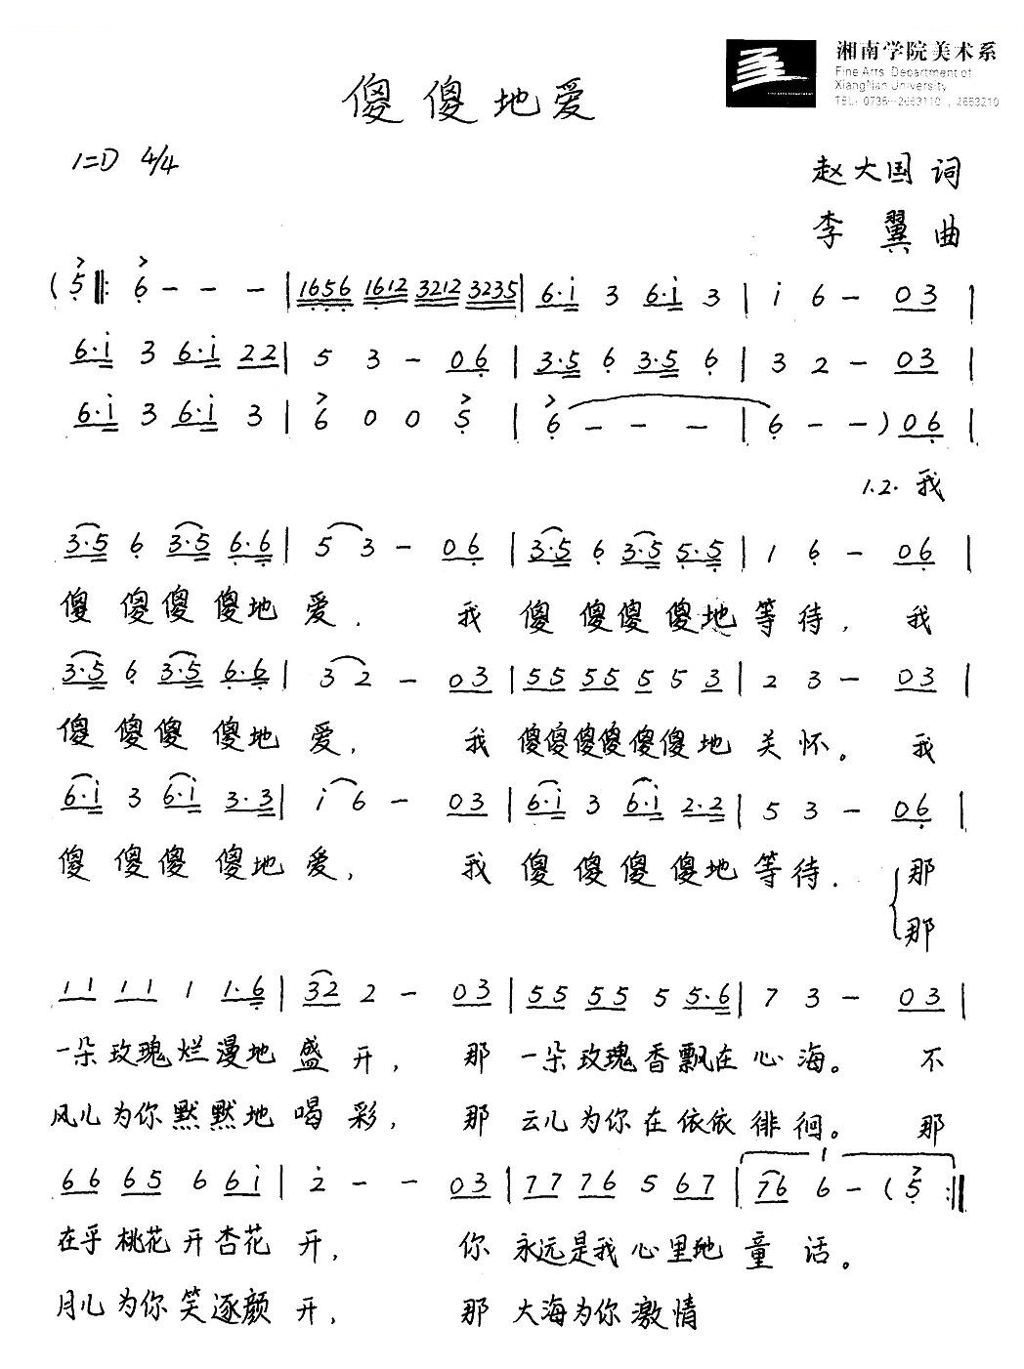 湘南学院美术系
Fine Arts Department of
XiangNan University
TEL: 0735-2653110, 2653210
傻傻地爱
1=D 4/4
赵大国 词
李翼 曲
(5 ‖: 6 - - - | 1656 1612 3212 3235 | 6·i 3 6·i 3 | i 6 - 03 |
6·i 3 6·i 22 | 5 3 - 06 | 3·5 6 3·5 6 | 3 2 - 03 |
6·i 3 6·i 3 | 6 0 0 5 | 6 - - - | 6 - -) 06 |
1.2. 我
3·5 6 3·5 6·6 | 5 3 - 06 | 3·5 6 3·5 5·5 | 1 6 - 06 |
傻 傻傻 傻地 爱. 我 傻 傻傻 傻地 等待, 我
3·5 6 3·5 6·6 | 3 2 - 03 | 55 55 5 5 3 | 2 3 - 03 |
傻 傻傻 傻地 爱, 我 傻傻傻傻傻傻地 关怀。 我
6·i 3 6·i 3·3 | i 6 - 03 | 6·i 3 6·i 2·2 | 5 3 - 06 |
傻 傻傻 傻地 爱, 我 傻 傻 傻 傻地 等待. 那
那
11 11 1 1·6 | 32 2 - 03 | 55 55 5 5·6 | 7 3 - 03 |
一朵玫瑰烂漫地 盛 开, 那 一朵玫瑰香飘在 心海。 不
风儿为你默默地 喝彩, 那 云儿为你在依依 徘徊。 那
66 65 6 6i | 2 - - 03 | 77 76 5 67 | 1 76 6 - (5 :‖
在乎桃花开杏花 开, 你 永远是我心里地 童 话。
月儿为你笑逐颜 开, 那 大海为你激情